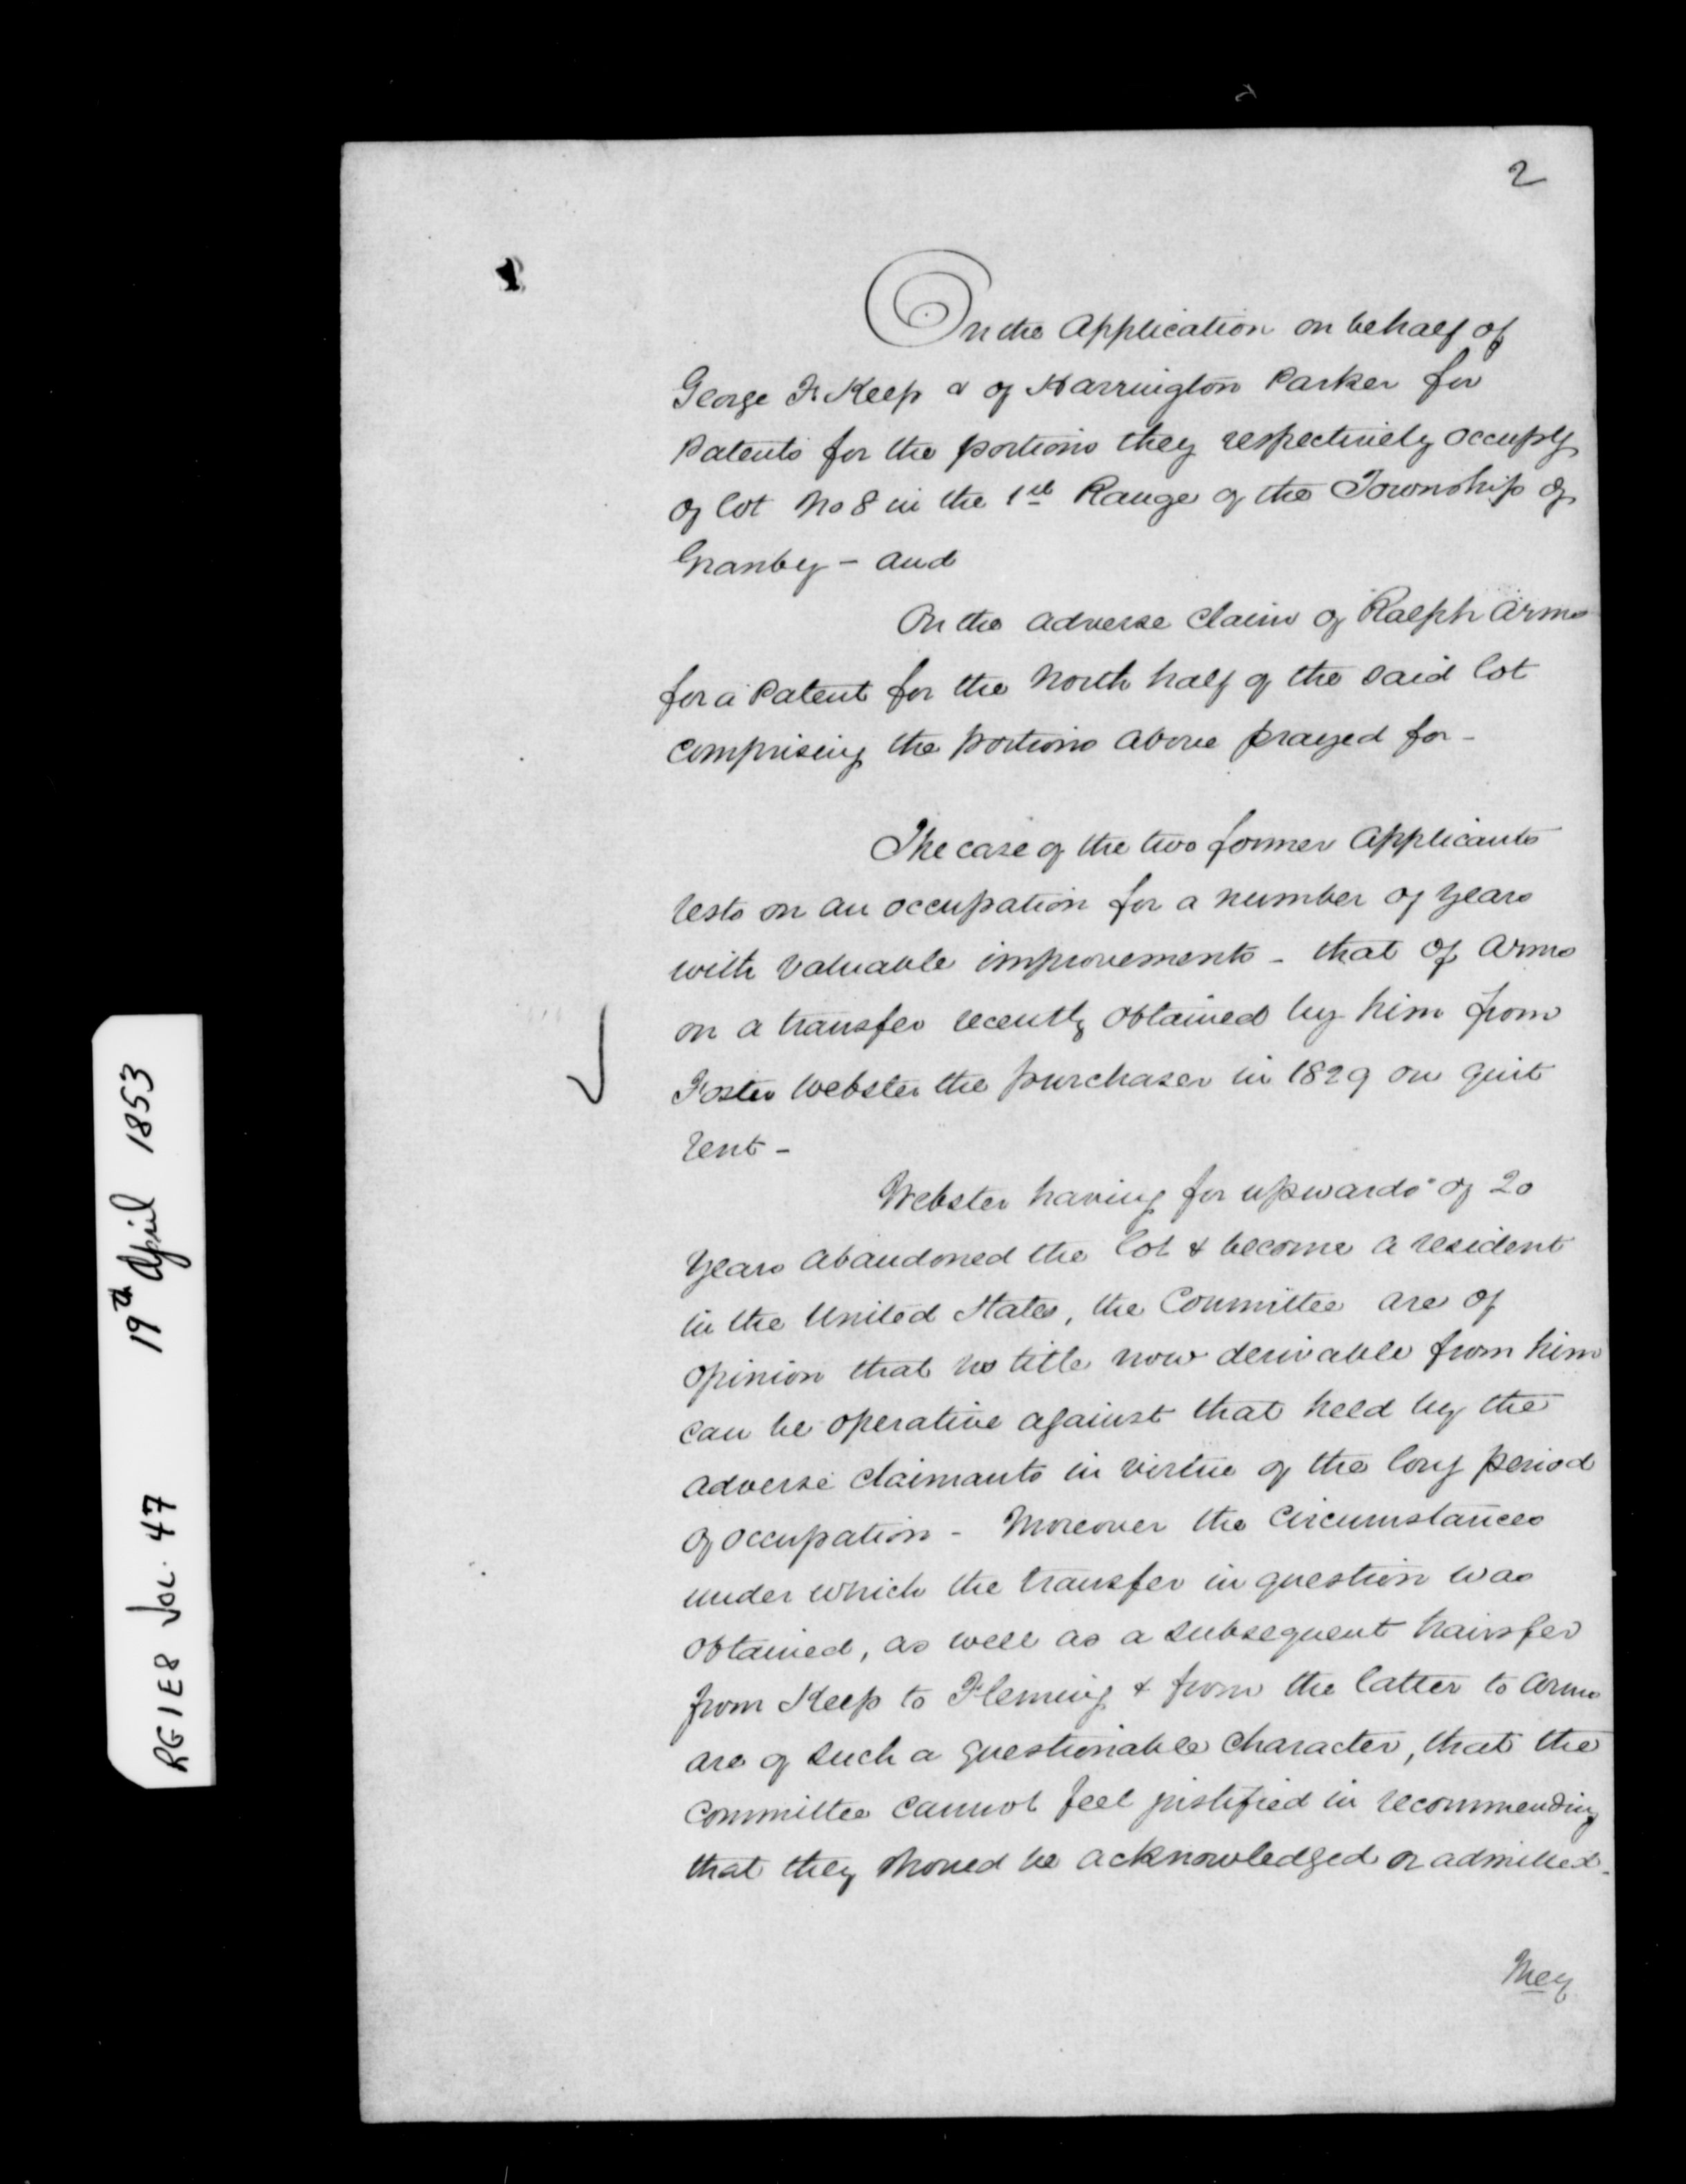 2
On the Application on behalf of
George F. Keep & of Harrington Parker for
Patents for the portions they respectively occupy
of lot No 8 in the 1st Range of the Township of
Granby - and
On the adverse claim of Ralph Arms
for a Patent for the North half of the said lot
comprising the portions above prayed for -
The case of the two former Applicants
rests on an occupation for a number of years
with valuable improvements - that of Arms
on a transfer recently obtained by him from
Foster Webster the purchaser in 1829 on quit
rent -
Webster having for upwards of 20
years abandoned the lot & become a resident
in the United States, the Committee are of
opinion that no title now derivable from him
can be operative against that held by the
adverse claimants in virtue of the long period
of occupation - Moreover the circumstances
under which the transfer in question was
obtained, as well as a subsequent transfer
from Keep to Fleming & from the latter to Arms
are of such a questionable character, that the
Committee cannot feel justified in recommending
that they should be acknowledged or admitted.
They
RG1E8 Vol. 47 19th April 1853